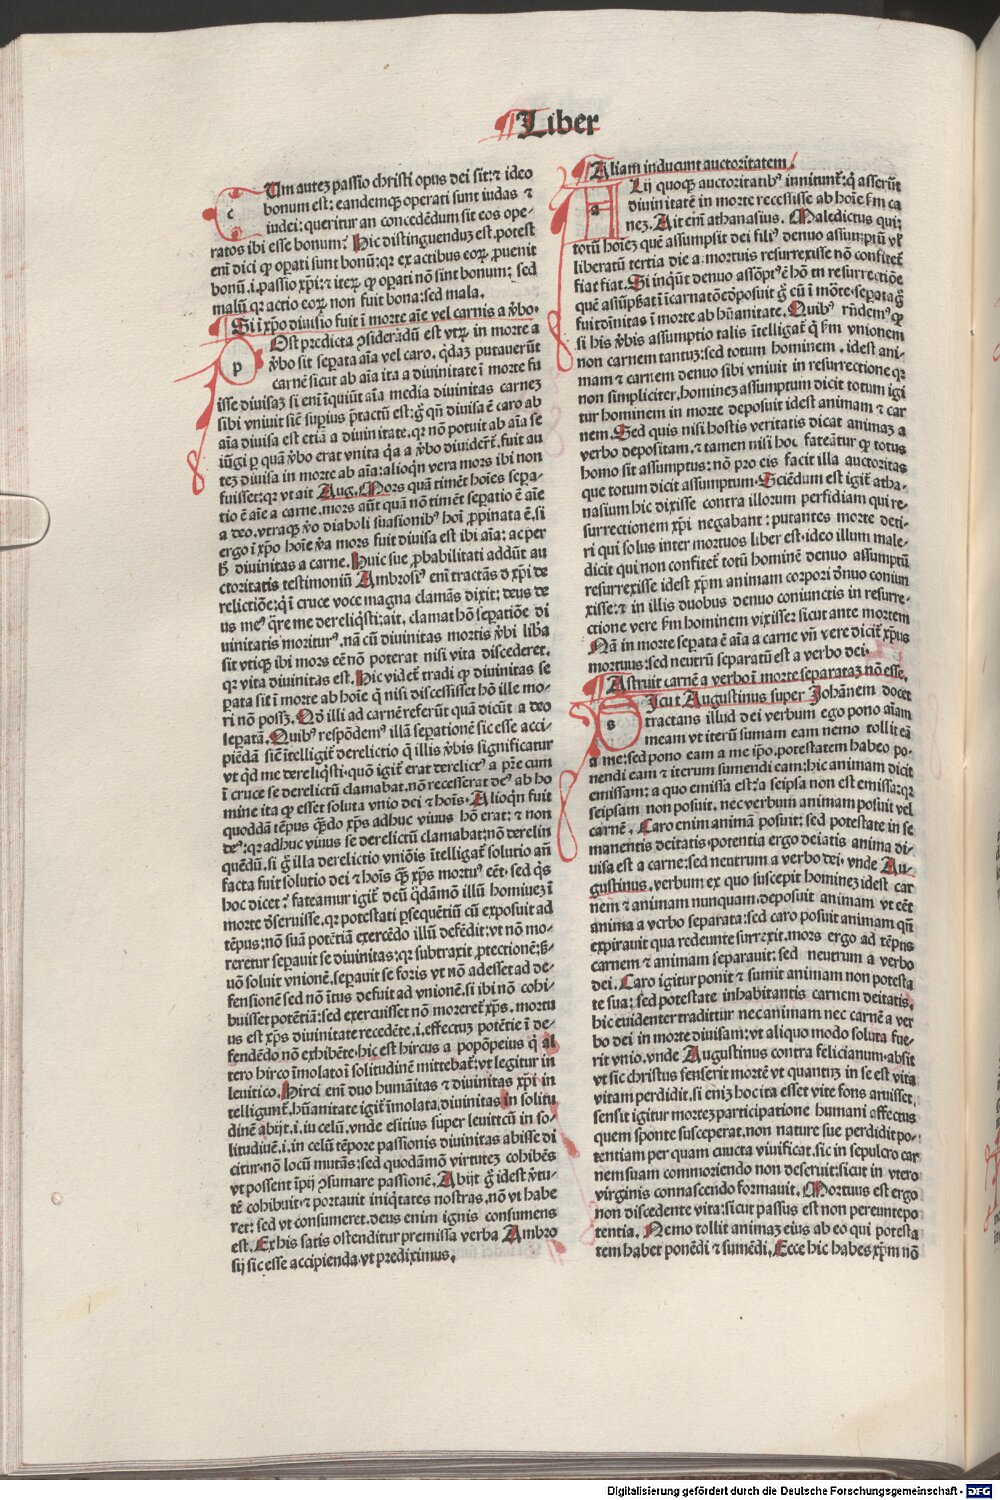 Liber
Um autez passio christi opus dei sit: ⁊ ideo
bonum est: eandemqꝫ operati sunt iudas ⁊
iudei: queritur an concedēdum sit eos ope-
ratos ibi esse bonum? Hic distinguenduz est. potest
eni dici ꝙ oꝑati sunt bonū: qꝛ ex actibus eoꝝ ꝓuenit
bonū .i. passio xp̄i: ⁊ iteꝝ ꝙ oꝑati nō sint bonum: sed
malū qꝛ actio eoꝝ non fuit bona: sed mala.
Si i xp̄o diuisio fuit ī morte aīe vel carnis a v̓bo.
p
Ost predicta ꝯsiderādū est vtꝝ in morte a
v̓bo sit seꝑata aīa vel caro. q̇daz putauerūt
carnē sicut ab aīa ita a diuinitate ī morte fu
isse diuisaz si eni īquiūt aīa media diuinitas carnez
sibi vniuit sic̄ suꝑius p̄tactū est: g̊ qn̄ diuisa ē caro ab
aīa diuisa est etiā a diuinitate. qꝛ nō potuit ab aīa se
iūgi ꝑ quā v̓bo erat vnita q̇a a v̓bo diuider̄t̄. fuit au
tez diuisa in morte ab aīa: alioqn̄ vera mors ibi non
fuisset: qꝛ vt ait Aug. Mors quā timēt hoīes seꝑa-
tio ē aīe a carne. mors aūt quā nō timēt seꝑatio ē aīe
a deo. vtraqꝫ v̓o diaboli suasionibꝰ hoī ꝓpinata ē. si
ergo ī xp̄o hoīe v̓a mors fuit diuisa est ibi aīa: ac per
h̄ diuinitas a carne. Huic sue ꝓbabilitati addūt au
ctoritatis testimoniū Ambrosiꝰ eni tractās d̓ xp̄i de
relictiōe: q̇ ī cruce voce magna clamās dixit: deus de
us meꝰ q̄re me dereliq̇sti: ait. clamat hō seꝑatiōe di
uinitatis moriturꝰ. nā cū diuinitas mortis v̓bi liba
sit vtiqꝫ ibi mors eē nō poterat nisi vita discederet.
qꝛ vita diuinitas est. Hic videt̄ tradi ꝙ diuinitas se
ꝑata sit ī morte ab hoīe q̄ nisi discessisset hō ille mo-
ri nō possꝫ. Qd̓ illi ad carnē referūt quā dicūt a deo
seꝑatā. Quibꝰ respōdemꝰ illā seꝑationē sic esse acci-
piēdā sic̄ ītelligit̄ derelictio q̄ illis v̓bis significatur
vt q̇d me dereliq̇sti. quō igit̄ erat derelictꝰ a pr̄e cum
ī cruce se derelictū clamabat. nō recesserat deꝰ ab ho
mine ita ꝙ esset soluta vnio dei ⁊ hoīs. Alioqn̄ fuit
quoddā tēpus qn̄do xp̄s adhuc viuus hō erat: ⁊ non
deꝰ: qꝛ adhuc viuus se derelictū clamabat: nō derelin
quēdū. si g̊ illa derelictio vniōis ītelligat̄ solutio an̄
facta fuit solutio dei ⁊ hoīs q̄ꝫ xp̄s mortuꝰ eēt. sed q̇s
hoc dicet? fateamur igit̄ deū q̇dāmō illū hominez ī
morte d̓seruisse. qꝛ potestati ꝑsequētiū cū exposuit ad
tēpus: nō suā potētiā exercēdo illū defēdit: vt nō mo-
reretur seꝑauit se diuinitas: qꝛ subtraxit ꝓtectionē: ß-
uō soluit vnionē. seꝑauit se foris vt nō adesset ad de-
fensionē sed nō ītus defuit ad vnionē. si ibi nō cohi-
buisset potētiā: sed exercuisset nō moreret̄ xp̄s. mortu
us est xp̄s diuinitate recedēte .i. effectuz potētie ī de-
fendēdo nō exhibēte. hic est hircus a popōpeius q̇ al
tero hirco īmolato ī solitudinē mittebat̄: vt legitur in
leuitico. Hirci eni duo humāitas ⁊ diuinitas xp̄i in
telligunt̄. hūanitate igit̄ īmolata. diuinitas in solitu
dinē abijt .i. iu celū. vnde esitius super leuitticū in so-
litudiuē .i. in celū tēpore passionis diuinitas abisse di
citur. nō locū mutās: sed quodāmō virtutez cohibēs
vt possent īpij ꝯsumare passionē. Abijt g̊ idest v̓tu-
tē cohibuit. ⁊ portauit iniq̇tates nostras. nō vt habe
ret: sed vt consumeret. deus enim ignis consumens
est. Ex his satis ostenditur premissa verba Ambro
sij sic esse accipienda vt prediximus.
Aliam inducunt auctoritatem.
a
Lij quoqꝫ auctoritatibꝰ innitunt̄: q̇ asserūt
diuinitatē in morte recessisse ab hoīe ẜm ca
nez. Ait eni athanasius. Maledictus qui;
totū hoīez quē assumpsit dei filiꝰ denuo assumptū vl̓
liberatū tertia die a mortuis resurrexisse nō confitet̄
fiat fiat. Si inq̇ūt denuo assōptꝰ ē hō in resurrectiōe
quē assūpserat ī icarnatōe d̓posuit g̊ cū ī morte. seꝑata g̊
fuit diuinitas ī morte ab hūanitate. Quibꝰ rn̄demꝰ ꝙ
si his v̓bis assumptio talis ītelligat̄ q̄ ẜm vnionem
non carnem tantuz: sed totum hominem. idest ani-
mam ⁊ carnem denuo sibi vniuit in resurrectione qꝛ
non simpliciter. hominez assumptum dicit totum igi
tur hominem in morte deposuit idest animam ⁊ car
nem. Sed quis nisi hostis veritatis dicat animaz a
verbo depositam. ⁊ tamen nisi hoc fateātur ꝙ totus
homo sit assumptus: nō pro eis facit illa auctoritas
que totum dicit assumptum. Sciēdum est igit̄ atha-
nasium hic dixisse contra illorum perfidiam qui re-
surrectionem xp̄i negabant: putantes morte deti-
ri qui solus inter mortuos liber est. ideo illum male-
dicit qui non confitet̄ totū hominē denuo assumptū
resurrexisse idest xp̄m animam corpori d̓nuo coniun
xisse: ⁊ in illis duobus denuo coniunctis in resurre-
ctione vere ẜm hominem vixisse: sicut ante mortem
Nā in morte seꝑata ē aīa a carne vn̄ vere dicit̄ xp̄us
mortuus: sed neutrū separatū est a verbo dei.
Astruit carnē a verbo ī morte separataz nō esse.
s
Icut Augustinus super Johānem docet
tractans illud dei verbum ego pono aīam
meam vt iterū sumam eam nemo tollit eā
a me: sed pono eam a me ipso. potestatem habeo po-
nendi eam ⁊ iterum sumendi eam: hic animam dicit
emissam: a quo emissa est: a seipsa non est emissa: qꝛ
seipsam non posuit. nec verbum animam posuit vel
carnē. Caro enim animā posuit: sed potestate in se
manentis deitatis. potentia ergo deiatis anima di-
uisa est a carne: sed neutrum a verbo dei. vnde Au-
gustinus. verbum ex quo suscepit hominez idest car
nem ⁊ animam nunquam. deposuit animam vt eēt
anima a verbo separata: sed caro posuit animam qn̄
expirauit qua redeunte surrexit. mors ergo ad tēpus
carnem ⁊ animam separauit: sed neutrum a verbo
dei. Caro igitur ponit ⁊ sumit animam non potesta
te sua: sed potestate inhabitantis carnem deitatis.
hic euidenter tradittur nec animam nec carnē a ver
bo dei in morte diuisam: vt aliquo modo soluta fue-
rit vnio. vnde Augustinus contra felicianum. absit
vt sic christus senserit mortē vt quantuz in se est vita
vitam perdidit. si eniz hoc ita esset vite fons aruisset.
sensit igitur mortez participatione humani affectus
quem sponte susceperat. non nature sue perdidit po-
tentiam per quam cuucta viuificat. sic in sepulcro car
nem suam commoriendo non deseruit: sicut in vtero
virginis connascendo formauit. Mortuus est ergo
non discedente vita: sicut passus est non pereunte po
tentia. Nemo tollit animaz eius ab eo qui potesta
tem habet ponēdi ⁊ sumēdi. Ecce hic habes xp̄m nō
Digitalisierung gefördert durch die Deutsche Forschungsgemeinschaft - DFG